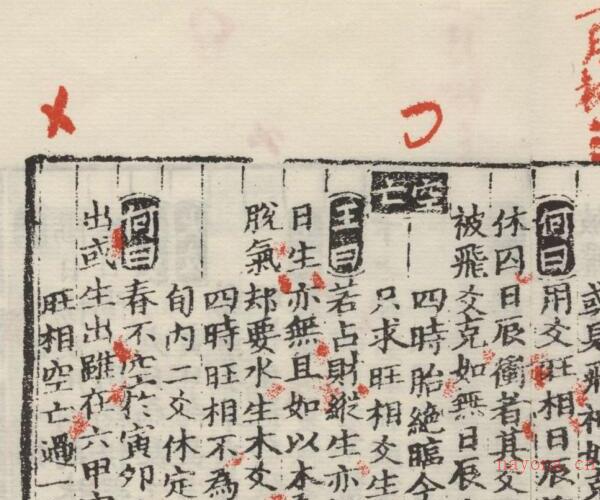 或見飛神如
何曰用爻旺相日辰
休囚日辰衝者其爻
被飛爻克如無日辰
空亡
四時胎絶臨今
只求旺相爻生
王曰若占財縱生亦
日生亦無且如以本
脫氣却要水生木爻
四時旺相不為
旬內二爻休定
何曰春不空於寅夘
出或生出雖在六甲
旺相空亡遇一
nayona.cn